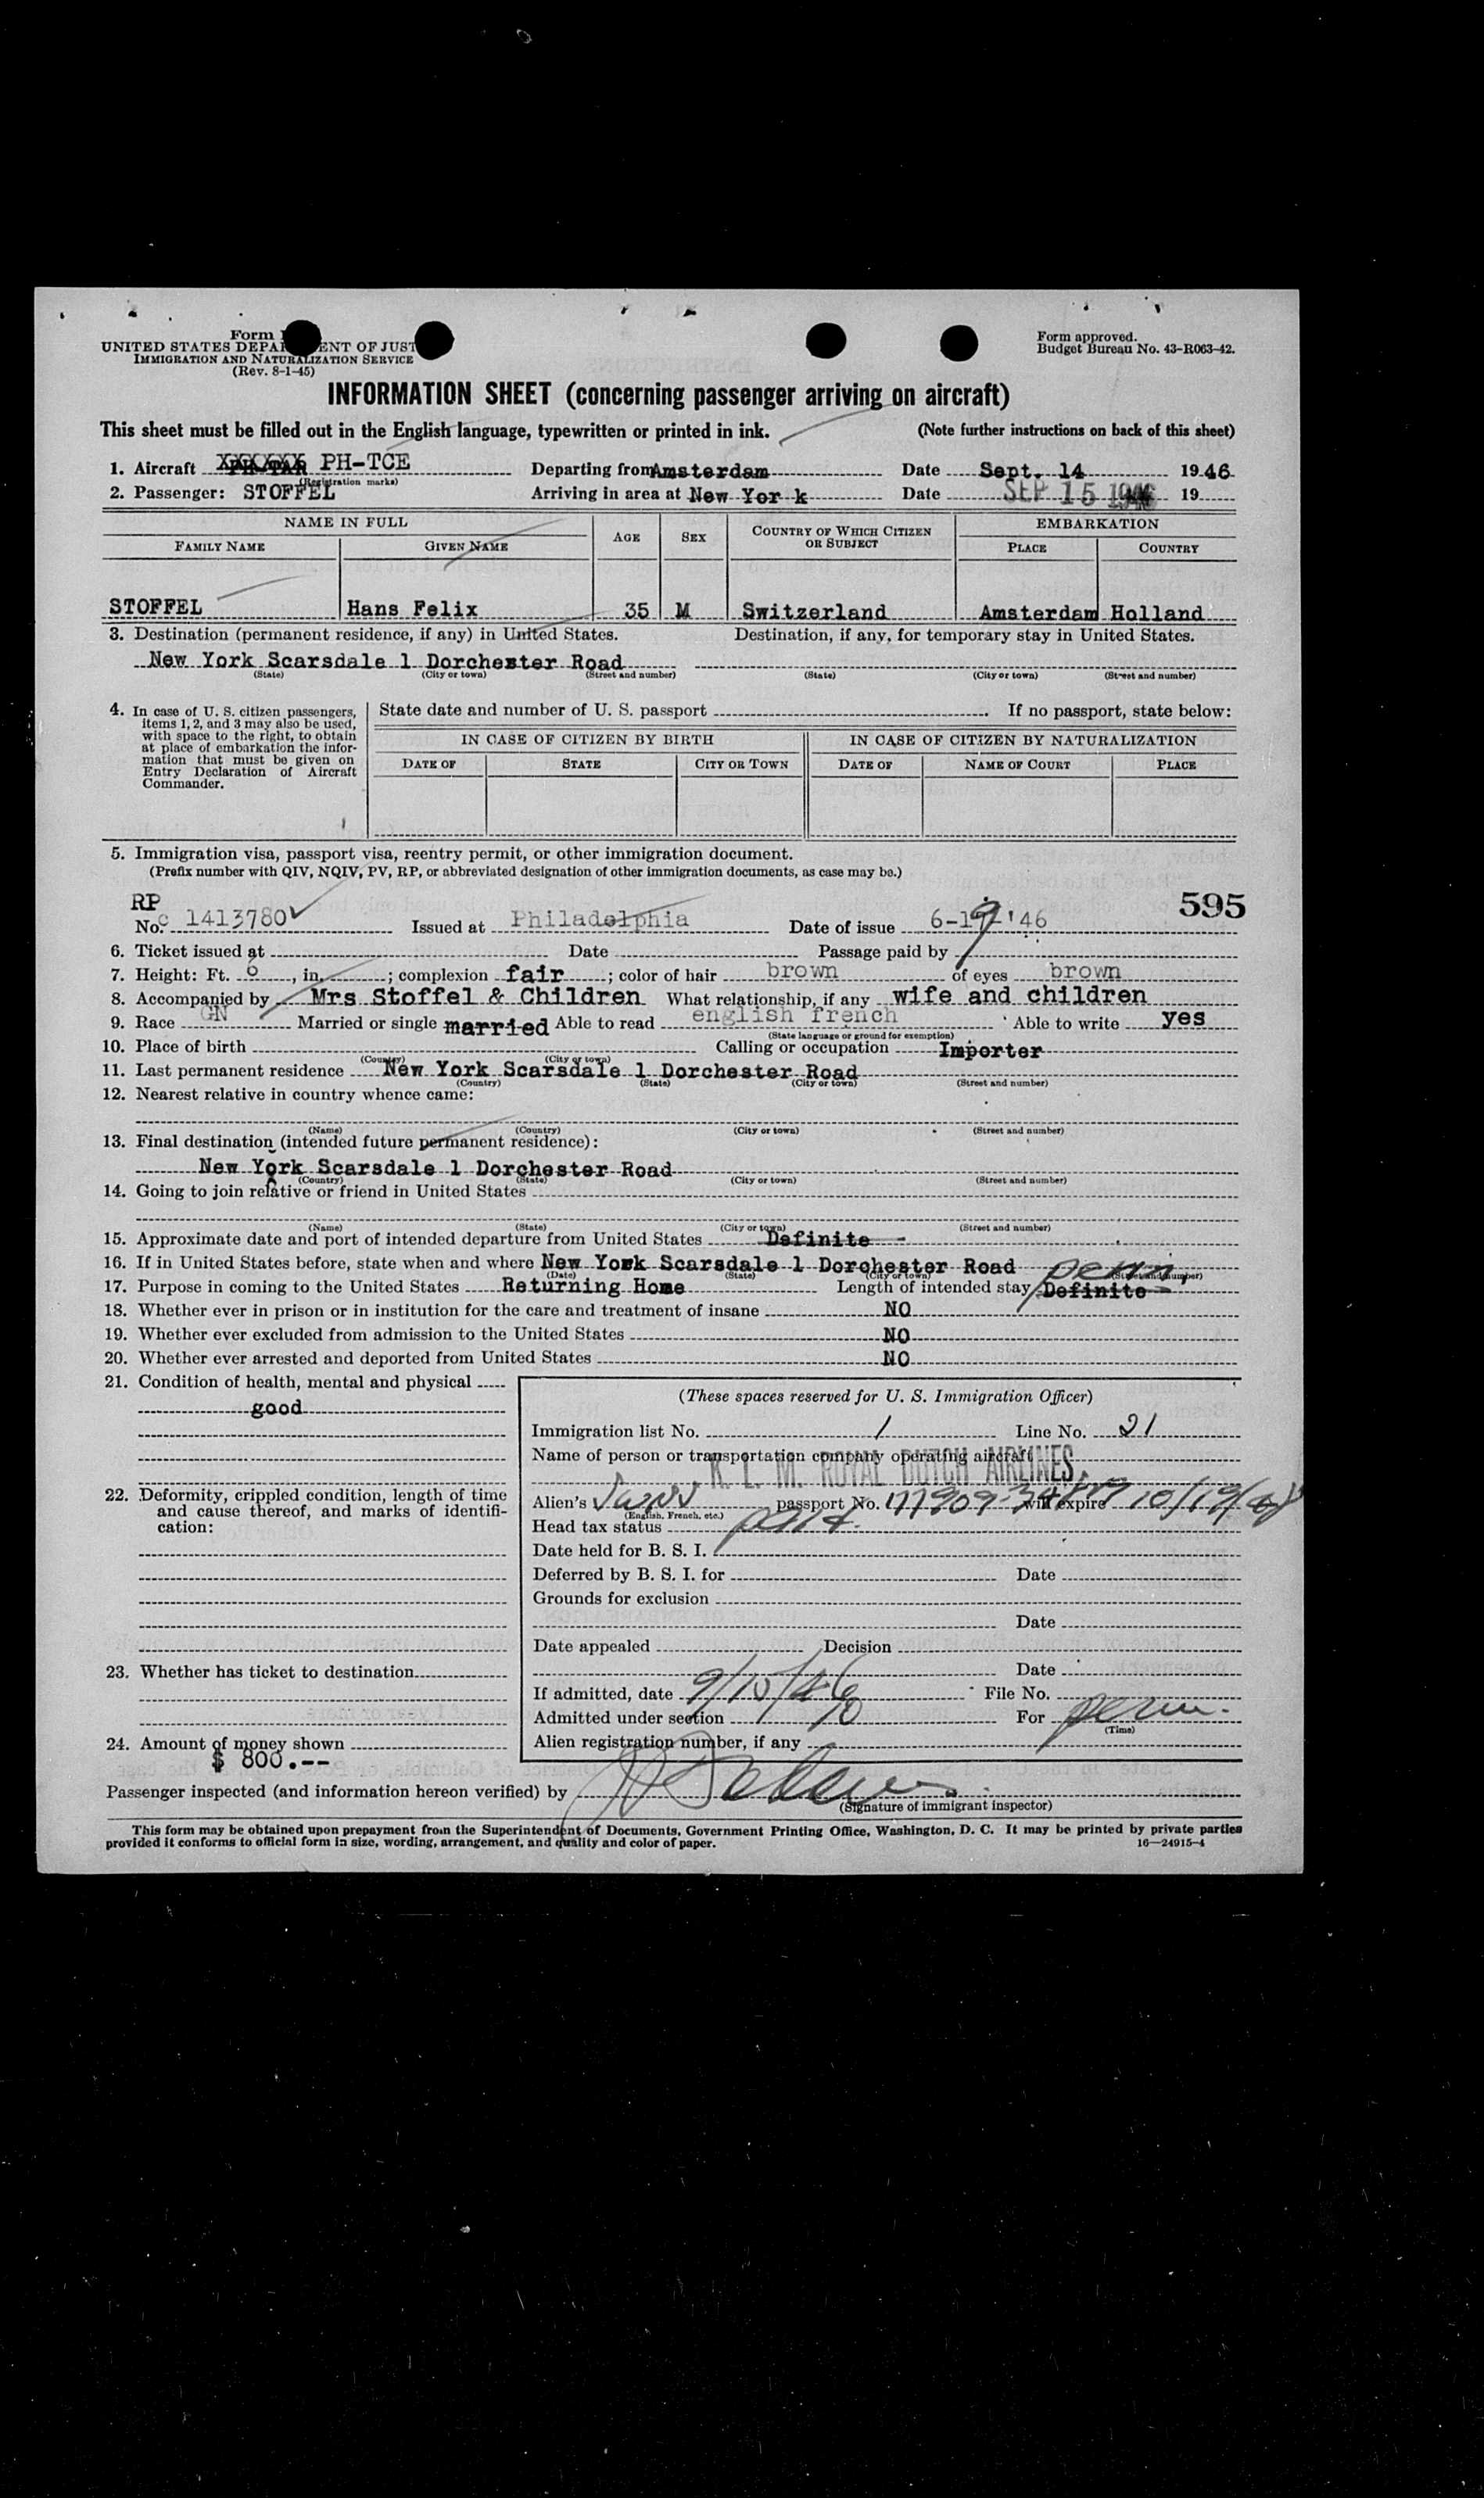 Form
UNITED STATES DEPA ENT OF JUST
IMMIGRATION AND NATURALIZATION SERVICE
(Rev. 8-1-45)
Form approved.
Budget Bureau No. 43-R063-42.
INFORMATION SHEET (concerning passenger arriving on aircraft)
This sheet must be filled out in the English language, typewritten or printed in ink. (Note further instructions on back of this sheet)
1. Aircraft PH-TCE Departing from Amsterdam Date Sept. 14 1946
(Registration marks)
2. Passenger: STOFFEL Arriving in area at New Yor k Date SEP 15 1946 19
NAME IN FULL AGE SEX COUNTRY OF WHICH CITIZEN OR SUBJECT EMBARKATION
FAMILY NAME GIVEN NAME PLACE COUNTRY
STOFFEL Hans Felix 35 M Switzerland Amsterdam Holland
3. Destination (permanent residence, if any) in United States. Destination, if any, for temporary stay in United States.
New York Scarsdale 1 Dorchester Road
(State) (City or town) (Street and number) (State) (City or town) (Street and number)
4. In case of U. S. citizen passengers, items 1, 2, and 3 may also be used, with space to the right, to obtain at place of embarkation the information that must be given on Entry Declaration of Aircraft Commander.
State date and number of U. S. passport . If no passport, state below:
IN CASE OF CITIZEN BY BIRTH IN CASE OF CITIZEN BY NATURALIZATION
DATE OF STATE CITY OR TOWN DATE OF NAME OF COURT PLACE
5. Immigration visa, passport visa, reentry permit, or other immigration document.
(Prefix number with QIV, NQIV, PV, RP, or abbreviated designation of other immigration documents, as case may be.)
595
RP
No. c 1413780 Issued at Philadelphia Date of issue 6-19-'46
6. Ticket issued at Date Passage paid by
7. Height: Ft. 6, in. ; complexion fair ; color of hair brown of eyes brown
8. Accompanied by Mrs Stoffel & Children What relationship, if any wife and children
9. Race GN Married or single married Able to read english french Able to write yes
(State language or ground for exemption)
10. Place of birth Calling or occupation Importer
(Country) (City or town)
11. Last permanent residence New York Scarsdale 1 Dorchester Road
(Country) (State) (City or town) (Street and number)
12. Nearest relative in country whence came:
(Name) (Country) (City or town) (Street and number)
13. Final destination (intended future permanent residence):
New York Scarsdale 1 Dorchester Road
(Country) (State) (City or town) (Street and number)
14. Going to join relative or friend in United States
(Name) (State) (City or town) (Street and number)
15. Approximate date and port of intended departure from United States Definite
16. If in United States before, state when and where New York Scarsdale 1 Dorchester Road
(Date) (State) (City or town) (Street and number)
perm.
17. Purpose in coming to the United States Returning Home Length of intended stay Definite
18. Whether ever in prison or in institution for the care and treatment of insane NO
19. Whether ever excluded from admission to the United States NO
20. Whether ever arrested and deported from United States NO
21. Condition of health, mental and physical
good
22. Deformity, crippled condition, length of time and cause thereof, and marks of identification:
23. Whether has ticket to destination
24. Amount of money shown
$ 800.--
(These spaces reserved for U. S. Immigration Officer)
Immigration list No. 1 Line No. 21
Name of person or transportation company operating aircraft
K. L. M. ROYAL DUTCH AIRLINES.
Alien's Swiss passport No. will expire
(English, French, etc.)
Head tax status paid
Date held for B. S. I.
Deferred by B. S. I. for Date
Grounds for exclusion
Date
Date appealed Decision
Date
If admitted, date 9/15/46 File No.
Admitted under section For perm.
(Time)
Alien registration number, if any
Passenger inspected (and information hereon verified) by
(Signature of immigrant inspector)
This form may be obtained upon prepayment from the Superintendent of Documents, Government Printing Office, Washington, D. C. It may be printed by private parties
provided it conforms to official form in size, wording, arrangement, and quality and color of paper. 16—24915-4